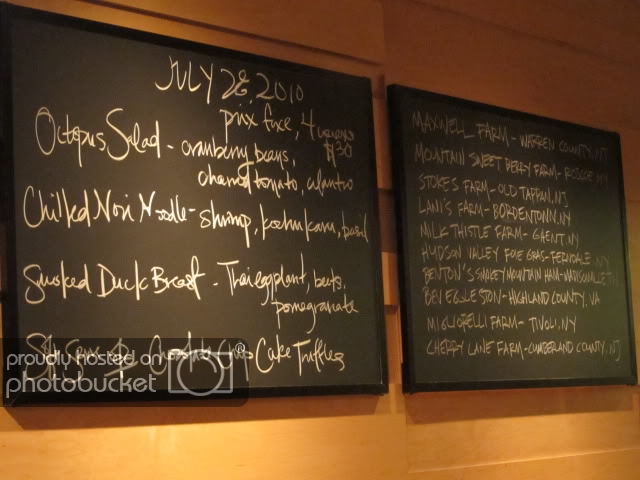 JULY 28 2010
prix fixe, 4 courses
$30
Octopus Salad - cranberry beans,
charred tomato, cilantro
Chilled Nori Noodle - shrimp, kochukaru, basil
Smoked Duck Breast - Thai eggplant, beets,
pomegranate
Cake Truffles
MAXWELL FARM - WARREN COUNTY, NJ
MOUNTAIN SWEET BERRY FARM - ROSCOE, NY
STOKES FARM - OLD TAPPAN, NJ
LANI'S FARM - BORDENTOWN, NY
MILK THISTLE FARM - GHENT, NY
HUDSON VALLEY FOIE GRAS - FERNDALE, NY
BENTON'S SMOKEY MOUNTAIN HAM - MADISONVILLE, TN
BEV EGGLESTON - HIGHLAND COUNTY, VA
MIGLIORELLI FARM - TIVOLI, NY
CHERRY LANE FARM - CUMBERLAND COUNTY, NJ
proudly hosted on
photobucket